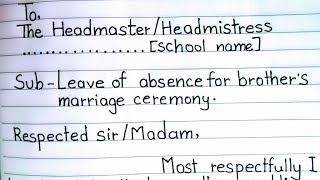 To,
The Headmaster/Headmistress
.................[school name]
Sub-Leave of absence for brother's
marriage ceremony.
Respected sir/Madam,
Most respectfully I